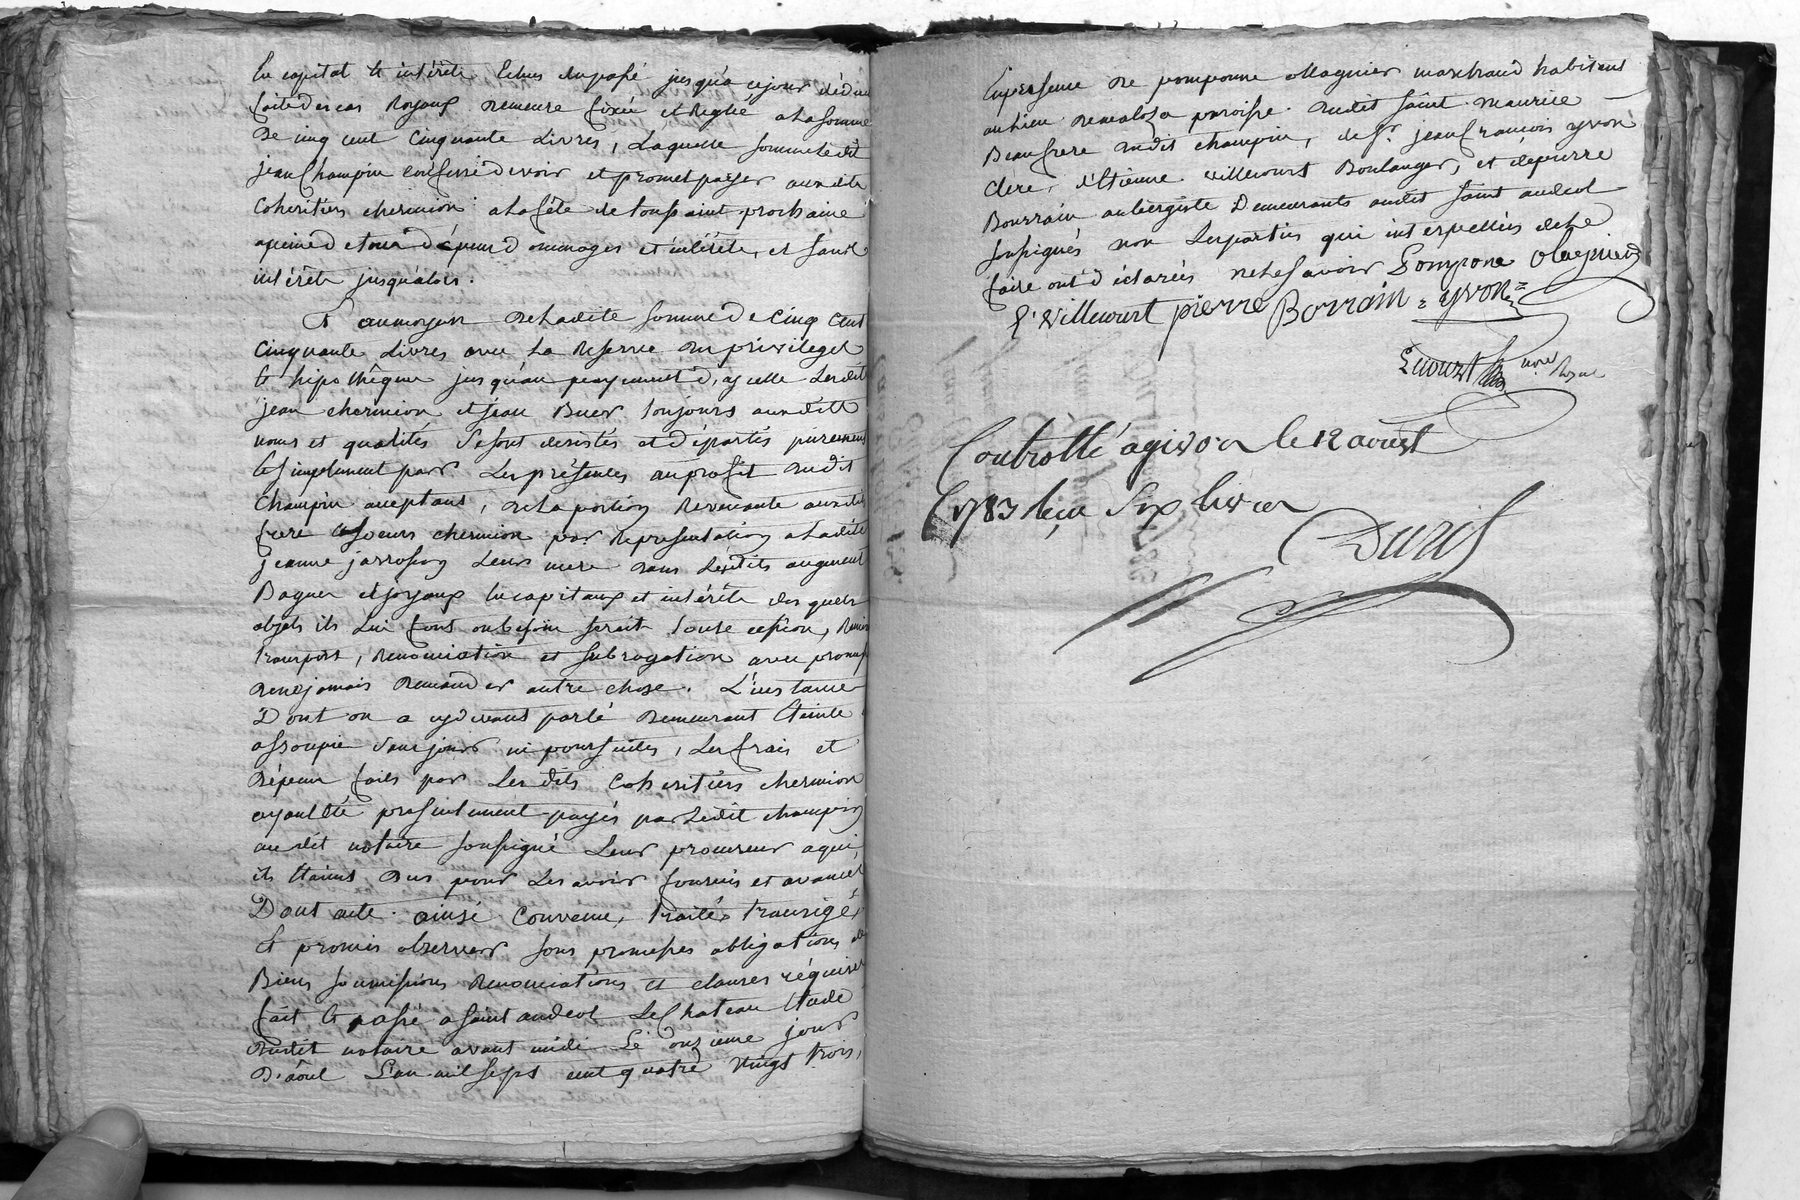 En capital et intérêts échus du passé jusqu'à ce jour déduction
faite des cas Royaux demeure fixée et Reglée a la somme
De cinq cent cinquante Livres, Laquelle somme ledit
jean Champin confesse devoir et promet payer auxdits
coheritiers chermion a la fête de toussaint prochaine
apeine d etous dépens d ommages et intérêts, et sans
intérêts jusqu'alors.
Et aumoyen de Ladite somme de cinq cent
cinquante Livres avec La Reserve du privilege et
et hipothêque jusqu'au payement d'ycelle Lesdits
jean chermion et jean Buer toujours auxdits
noms et qualités se sont desistés et départis purement
et simplement par Les présentes au profit dudit
Champin acceptant, de La portion Revenante auxdits
frere et soeurs chermion par Representation a Ladite
jeanne jarrosson Leur mere dans Lesdits augment
Bagues et joyaux en capitaux et intérêts des quels
objets ils Lui font au besoin serait toute cession, Remise
transport, Renonciation et subrogation avec promesse
de ne jamais demander autre chose. L'instance
Dont on a cydevant parlé demeurant éteinte
assoupie sans jour ni poursuites, Les frais et
dépens faits par Lesdits coheritiers chermion
ayant été presentement payés par Ledit champin
audit notaire soussigné Leur procureur aqui
ils étaient dus pour Les avoir fournis et avancés
Dont acte. ainsi convenu, traité, transigé,
Et promis observer sous promesses obligations de
Biens soumissions Renonciations et clauses réquises
fait et passé a saint andeol Le Chateau étude
dudit notaire avant midi Le onzieme jour
D'aôut L'an mil sept cent quatre vingt trois,
En presence de pomponne ollagnier marchand habitant
au Lieu de paroisse dudit saint maurice
Beaufrere dudit champin, de Sr. jean francois yvon
clerc, d'étienne villecourt Boulanger, et de pierre
Bourrain aubergiste Demeurants audit saint andeol
soussignés non Les parties qui interpellées de Le
faire ont déclarées ne Le savoir Pompone Olagnier
E. Villecourt pierre Borrain = yvon =
nore Royal
Controllé a givor le 12 aoust
1783 Reçu six livres